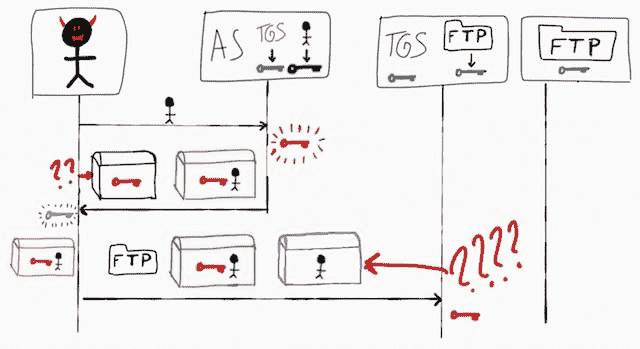 AS
TGS
TGS
FTP
FTP
??
FTP
????